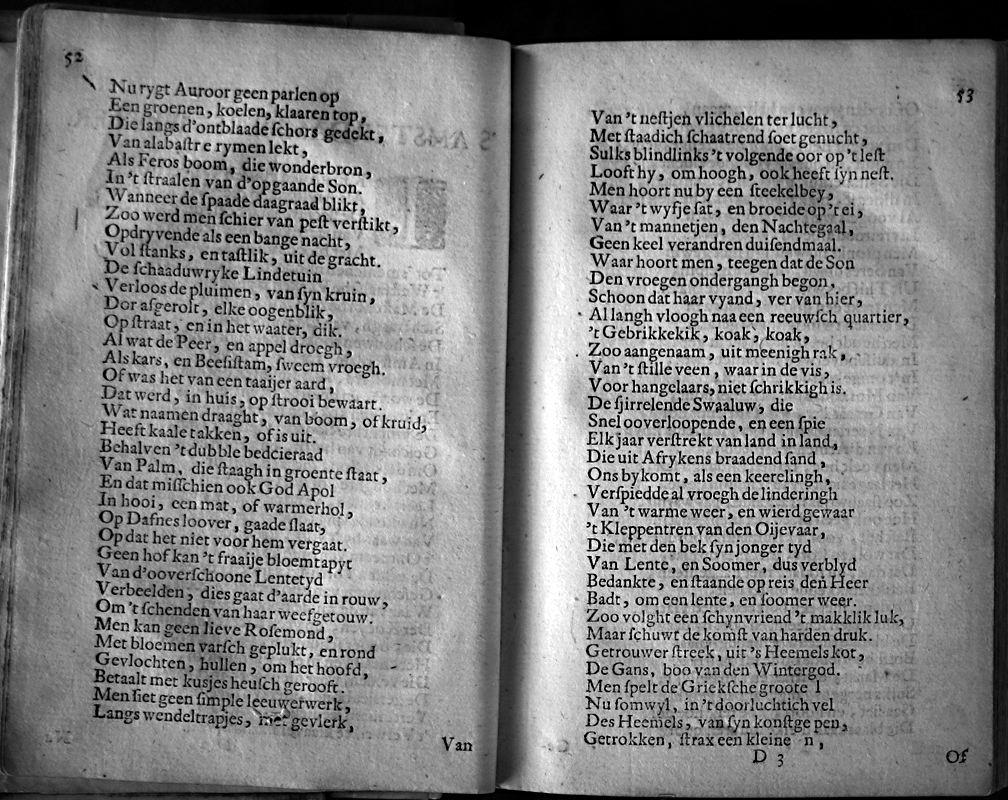 52
Nu rygt Auroor geen parlen op
Een groenen, koelen, klaaren top,
Die langs d'ontblaade ſchors gedekt,
Van alabaſtre rymen lekt,
Als Feros boom, die wonderbron,
In 't ſtraalen van d'opgaande Son.
Wanneer de ſpaade daagraad blikt,
Zoo werd men ſchier van peſt verſtikt,
Opdryvende als een bange nacht,
Vol ſtanks, en taſtlik, uit de gracht.
De ſchaaduwryke Lindetuin
Verloos de pluimen, van ſyn kruin,
Dor afgerolt, elke oogenblik,
Op ſtraat, en in het waater, dik.
Al wat de Peer, en appel droegh,
Als kars, en Beeſiſtam, ſweem vroegh.
Of was het van een taaijer aard,
Dat werd, in huis, op ſtrooi bewaart.
Wat naamen draaght, van boom, of kruid,
Heeft kaale takken, of is uit.
Behalven 't dubble bedcieraad
Van Palm, die ſtaagh in groente ſtaat,
En dat miſſchien ook God Apol
In hooi, een mat, of warmer hol,
Op Dafnes loover, gaade ſlaat,
Op dat het niet voor hem vergaat.
Geen hof kan 't fraaije bloemtapyt
Van d'ooverſchoone Lentetyd
Verbeelden, dies gaat d'aarde in rouw,
Om 't ſchenden van haar weefgetouw.
Men kan geen lieve Roſemond,
Met bloemen varſch geplukt, en rond
Gevlochten, hullen, om het hoofd,
Betaalt met kusjes heuſch gerooft.
Men ſiet geen ſimple leeuwerwerk,
Langs wendeltrapjes, met gevlerk,
Van
53
Van 't neſtjen vlichelen ter lucht,
Met ſtaadich ſchaatrend ſoet genucht,
Sulks blindlinks 't volgende oor op 't leſt
Looft hy, om hoogh, ook heeft ſyn neſt.
Men hoort nu by een ſteekelbey,
Waar 't wyfje ſat, en broeide op 't ei,
Van 't mannetjen, den Nachtegaal,
Geen keel verandren duiſendmaal.
Waar hoort men, teegen dat de Son
Den vroegen ondergangh begon,
Schoon dat haar vyand, ver van hier,
Al langh vloogh naa een reeuwſch quartier,
't Gebrikkekik, koak, koak,
Zoo aangenaam, uit meenigh rak,
Van 't ſtille veen, waar in de vis,
Voor hangelaars, niet ſchrikkigh is.
De ſjirrelende Swaaluw, die
Snel ooverloopende, en een ſpie
Elk jaar verſtrekt van land in land,
Die uit Afrykens braadend ſand,
Ons bykomt, als een keerelingh,
Verſpiedde al vroegh de linderingh
Van 't warme weer, en wierd gewaar
't Kleppentren van den Oijevaar,
Die met den bek ſyn jonger tyd
Van Lente, en Soomer, dus verblyd
Bedankte, en ſtaande op reis den Heer
Badt, om een lente, en ſoomer weer.
Zoo volght een ſchynvriend 't makklik luk,
Maar ſchuwt de komſt van harden druk.
Getrouwer ſtreek, uit 's Heemels kot,
De Gans, boo van den Wintergod.
Men ſpelt de Griekſche groote l
Nu ſomwyl, in 't doorluchtich vel
Des Heemels, van ſyn konſtge pen,
Getrokken, ſtrax een kleine n,
D 3
Of